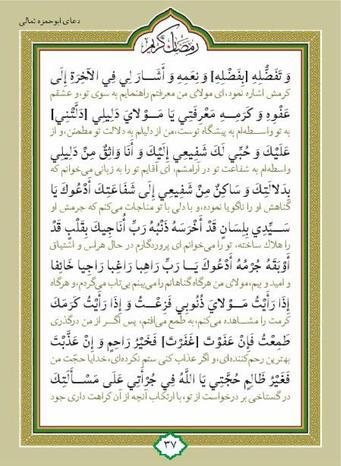 دعای ابوحمزه ثمالی
رمضان کریم
وَ تَفَضُّلِهِ [بِفَضْلِهِ] وَ نِعَمِهِ وَ أَشَارَ لِي فِي الْآخِرَةِ إِلَى
کرمش اشاره نمود، ای مولای من معرفتم راهنمایم به سوی تو، و عشقم
عَفْوِهِ وَ كَرَمِهِ مَعْرِفَتِي يَا مَوْلَايَ دَلِيلِي [دَلَّتْنِي]
به تو واسطه‌ام به پیشگاه توست، من از دلیلم به دلالت تو مطمئن، و از
عَلَيْكَ وَ حُبِّي لَكَ شَفِيعِي إِلَيْكَ وَ أَنَا وَاثِقٌ مِنْ دَلِيلِي
واسطه‌ام به شفاعت تو در آرامشم، ای آقایم تو را به زبانی می‌خوانم که
بِدَلَالَتِكَ وَ سَاكِنٌ مِنْ شَفِيعِي إِلَى شَفَاعَتِكَ أَدْعُوكَ يَا
گناهش او را ناگویا نموده، و با دلی با تو مناجات می‌کنم که جرمش او
سَيِّدِي بِلِسَانٍ قَدْ أَخْرَسَهُ ذَنْبُهُ رَبِّ أُنَاجِيكَ بِقَلْبٍ قَدْ
را هلاک ساخته، تو را می‌خوانم ای پروردگارم در حال هراس و اشتیاق
أَوْبَقَهُ جُرْمُهُ أَدْعُوكَ يَا رَبِّ رَاهِبا رَاغِبا رَاجِيا خَائِفا
و امید و بیم، مولای من هرگاه گناهانم را می‌بینم بی‌تاب می‌گردم، و هرگاه
إِذَا رَأَيْتُ مَوْلَايَ ذُنُوبِي فَزِعْتُ وَ إِذَا رَأَيْتُ كَرَمَكَ
کرمت را مشاهده می‌کنم، به طمع می‌افتم، پس اگر از من درگذری
طَمِعْتُ فَإِنْ عَفَوْتَ [غَفَرْتَ] فَخَيْرُ رَاحِمٍ وَ إِنْ عَذَّبْتَ
بهترین رحم‌کننده‌ای، و اگر عذاب کنی ستم نکرده‌ای، خدایا حجّت من
فَغَيْرُ ظَالِمٍ حُجَّتِي يَا اللَّهُ فِي جُرْأَتِي عَلَى مَسْأَلَتِكَ
در گستاخی بر درخواست از تو، با ارتکاب آنچه از آن کراهت داری جود
۳۷